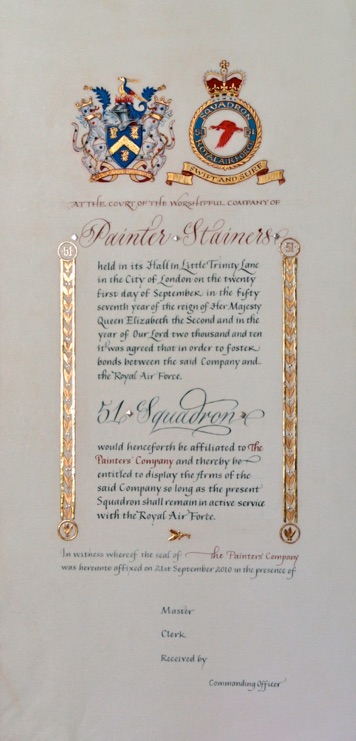 51 SQUADRON 51
ROYAL AIR FORCE
SWIFT AND SURE
AT THE COURT OF THE WORSHIPFUL COMPANY OF
Painter Stainers
51 51
held in its Hall in Little Trinity Lane
in the City of London on the twenty
first day of September in the fifty
seventh year of the reign of Her Majesty
Queen Elizabeth the Second and in the
year of Our Lord two thousand and ten
it was agreed that in order to foster
bonds between the said Company and
the Royal Air Force.
51 Squadron
would henceforth be affiliated to The
Painters' Company and thereby be
entitled to display the Arms of the
said Company so long as the present
Squadron shall remain in active service
with the Royal Air Force.
In witness whereof the seal of the Painters' Company
was hereunto affixed on 21st September 2010 in the presence of
Master
Clerk
Received by
Commanding Officer